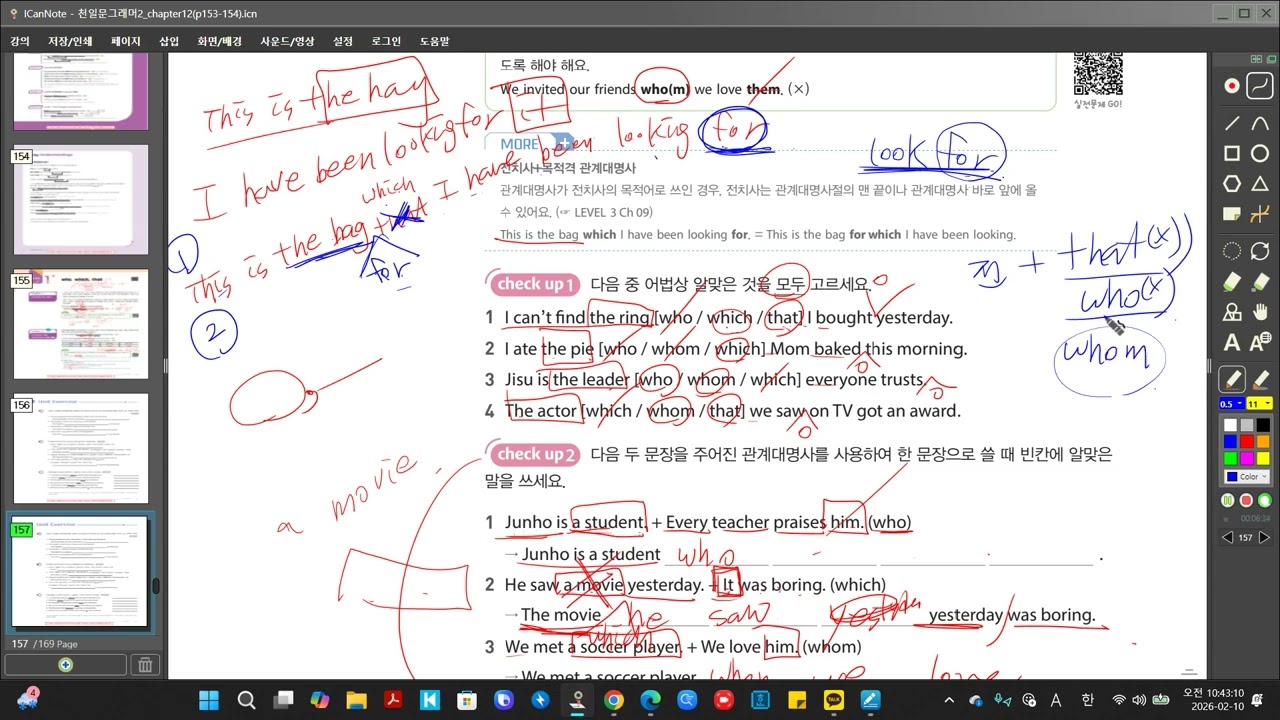 ICanNote - 천일문그래머2_chapter12(p153-154).icn
강의 저장/인쇄 페이지 삽입 화면/배경 사운드/영상 설정 로그인 도움말
도록 해야 해요.
invited our friends who(m) we love them. (×)
실전문제 GO!
This is
I have been looking for
been looking for
look for
MORE
전치사의 목적격 관계대명사
관계대명사가 전치사의 목적어로 쓰인 경우, 전치사는 관계대명사절의 맨 끝이나 관계대명사 바로 앞에 올
수 있어요. (☞ LEVEL 3 Ch 09)
This is the bag which I have been looking for. = This is the bag for which I have been looking.
① This is the bag that
for
②
전 + that(x)
who(x)
whom
다음 중 어법상 알맞은 것을 모두 고르세요.
1 I can't find the ring [who / which / that] I bought yesterday.
2 pie [who / whom / which] Mom baked this morning.
3 Jisu is the leader [who / whom / which] everyone trusts.
actor [which / whom / that] on TV got an award.
다음 두 문장을 주어진 관계대명사를 사용하여 한 문장으로 쓸 때 빈칸에 알맞은
말을 쓰세요.
Junho is a student. + Every teacher praises him. (who)
→ Junho is a student who .
saw a movie yesterday. + It was boring. (which)
The movie yesterday was boring.
which
3 We met a soccer player. + We love him. (whom)
→ We met a soccer player whom we love
154
155
156
157
157 /169 Page
0.5 11
Color
157
4
A 한
오전 10:43:10
2026-02-10